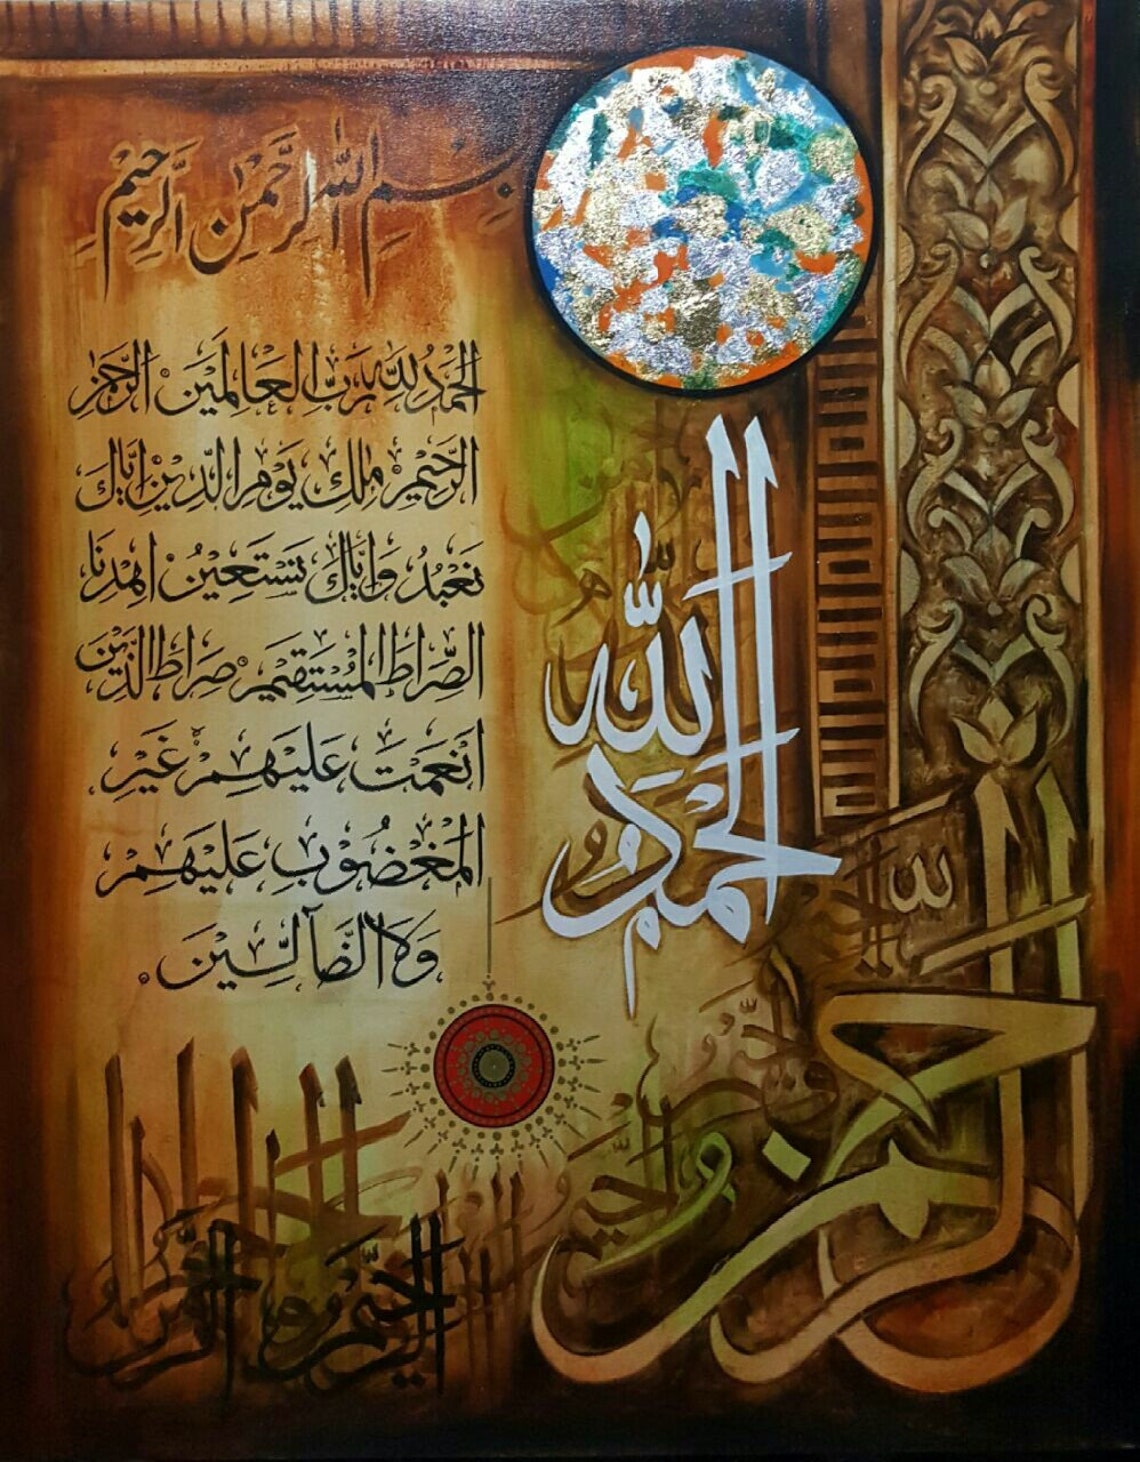 بِسْمِ اللهِ الرَّحْمٰنِ الرَّحِيْمِ
اَلْحَمْدُ لِلّٰهِ رَبِّ الْعَالَمِيْنَ الرَّحْمٰنِ
الرَّحِيْمِ مٰلِكِ يَوْمِ الدِّيْنِ اِيَّاكَ
نَعْبُدُ وَاِيَّاكَ نَسْتَعِيْنُ اِهْدِنَا
الصِّرَاطَ الْمُسْتَقِيْمَ صِرَاطَ الَّذِيْنَ
اَنْعَمْتَ عَلَيْهِمْ غَيْرِ
الْمَغْضُوْبِ عَلَيْهِمْ
وَلَا الضَّآلِّيْنَ
الحمد
لله
الرحمن
الرحيم